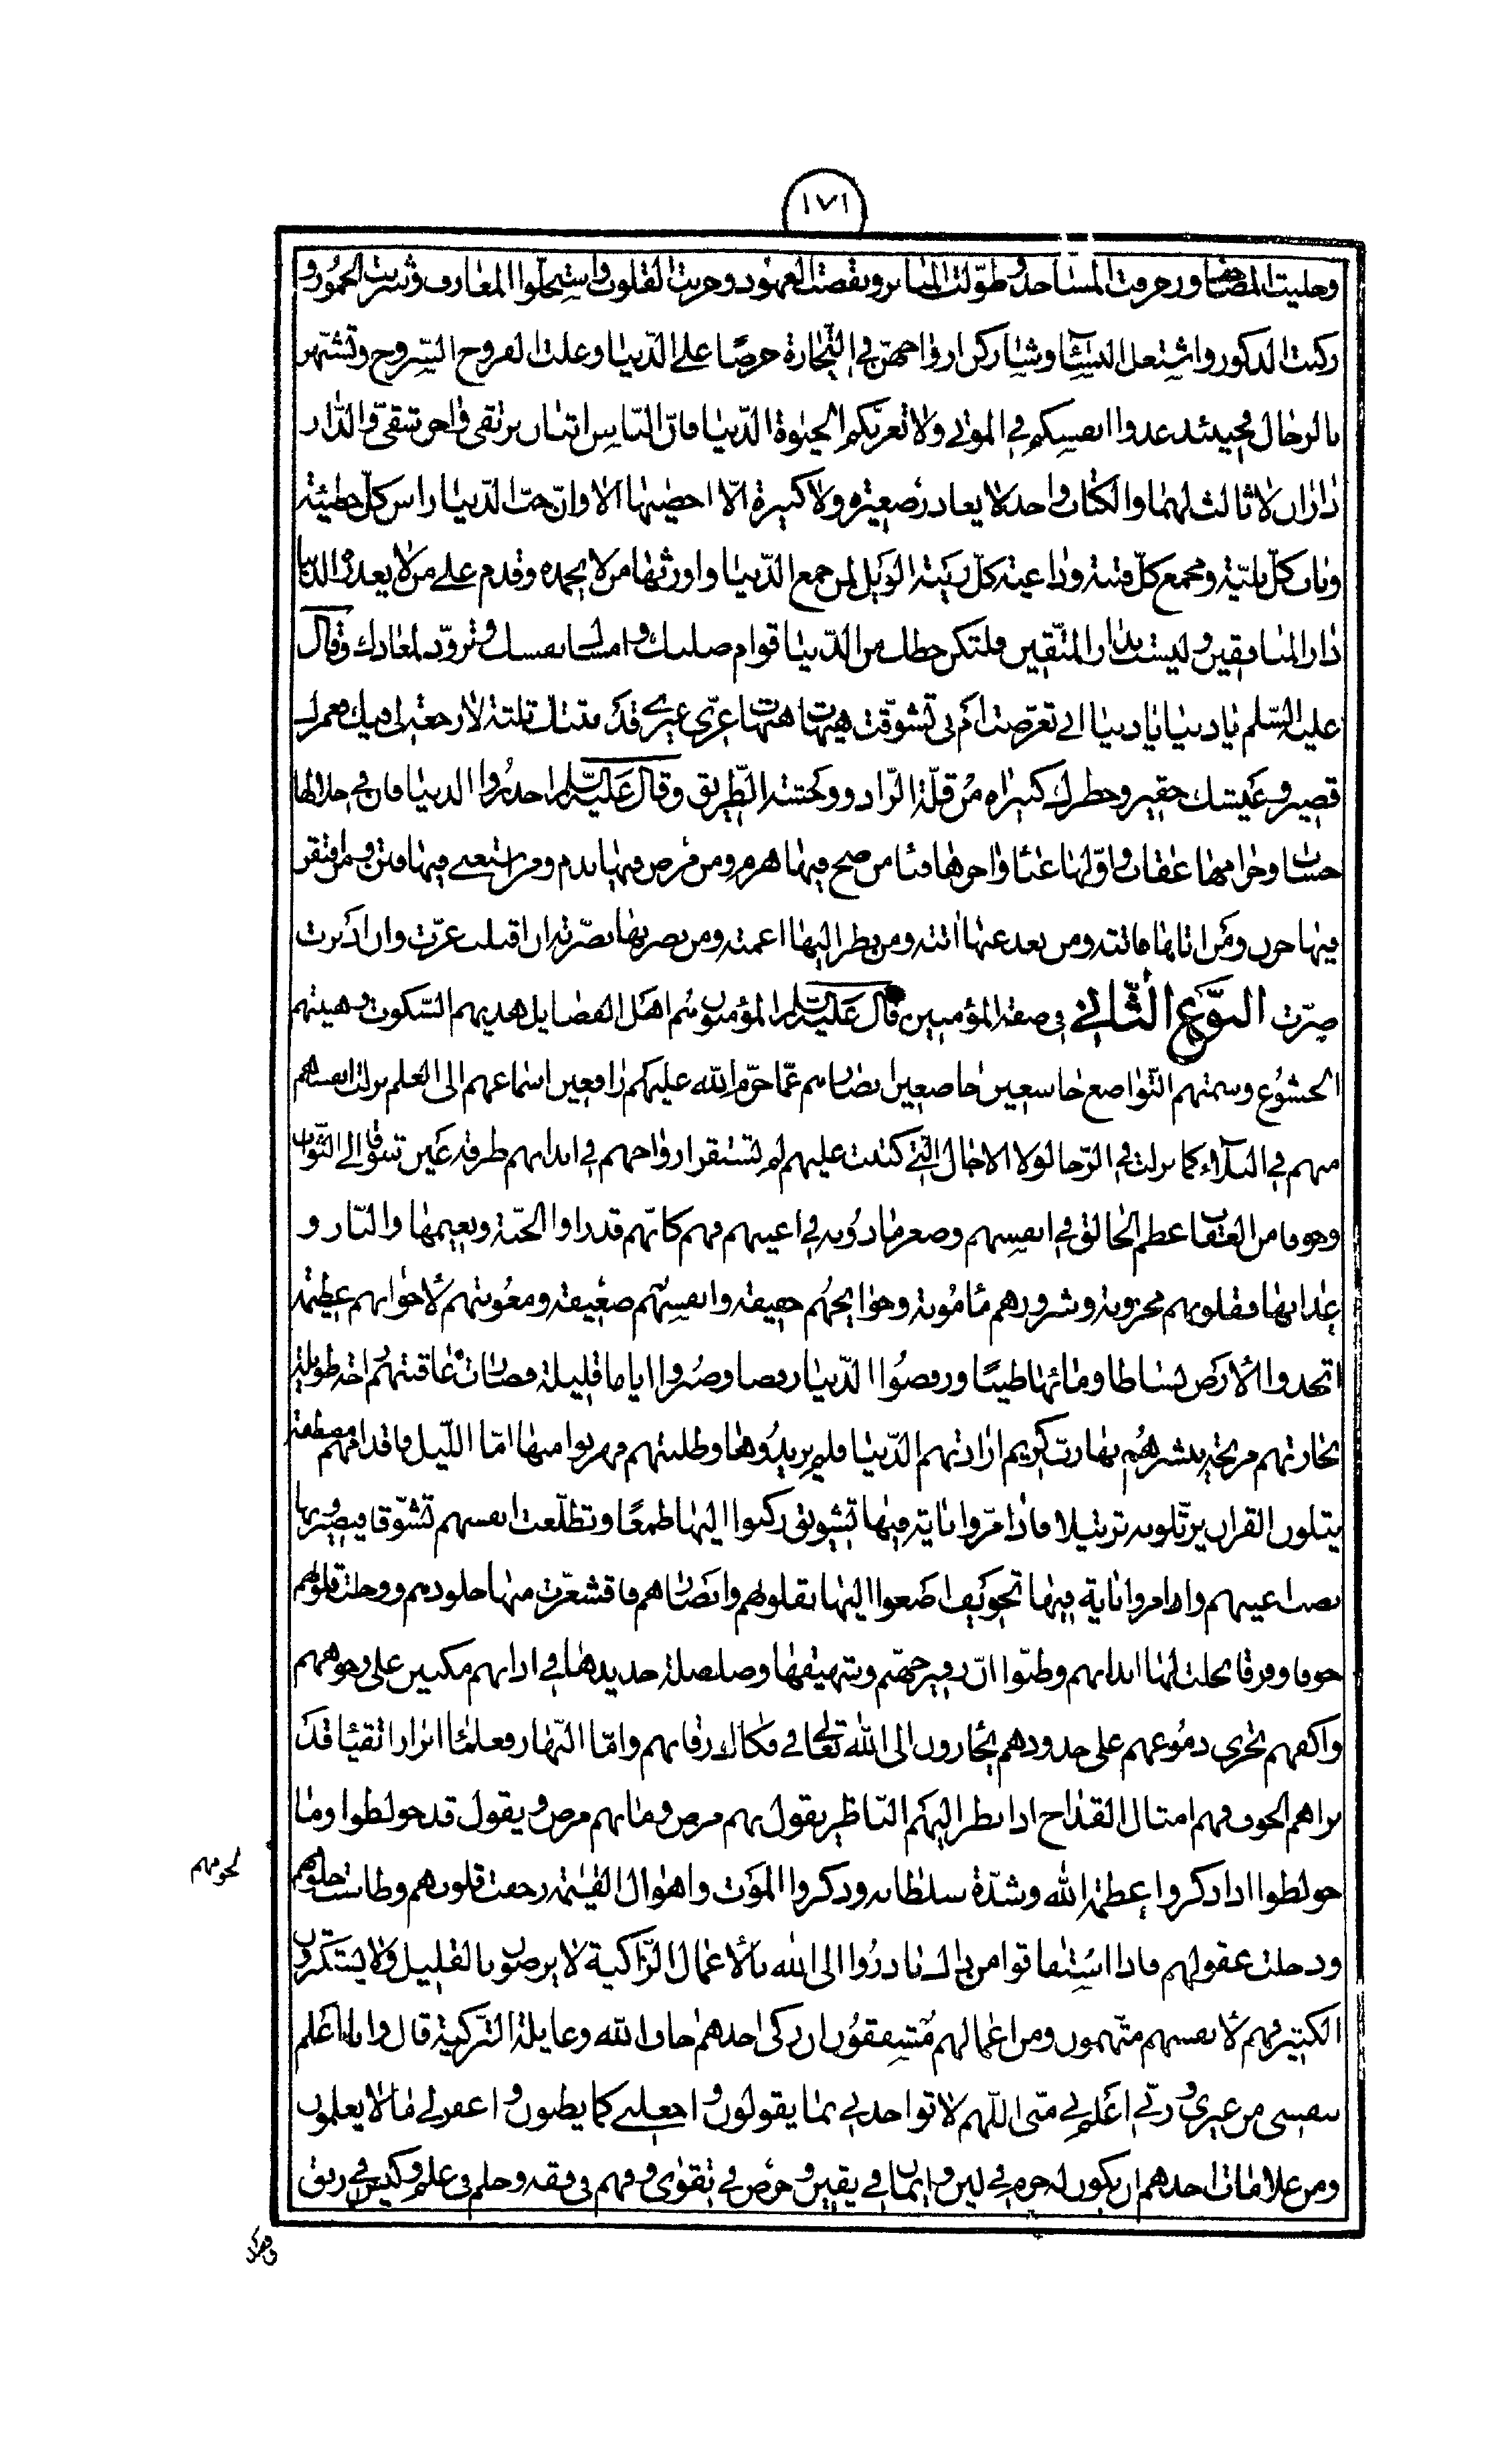 ١٧١
وحليت المصاحف وزخرفت المساجد وطوّلت المنابر ونقضت العهود وخربت القلوب واستحلّوا المعازف وشربت الخمور و
ركبت الذكور واشتغل النساء وشاركن ازواجهنّ في التّجارة حرصًا على الدّنيا وعلت الفروج السّروج وتشبّهن
بالرجال فحينئذ عدوا انفسكم في الموتى ولا تغرّنكم الحيوة الدّنيا فانّ النّاس اثنان برّ تقي واخر شقيّ والدّار
داران لا ثالث لهما والكتاب واحد لا يغادر صغيرة ولا كبيرة الّا احصيها الا وانّ حبّ الدّنيا راس كلّ خطيئة
وباب كلّ بليّة ومجمع كلّ فتنة وداعية كلّ ريبة الويل لمن جمع الدّنيا واورثها من لا يحمده وقدم على من لا يعذره الدنيا
دار المنافقين وليست بدار المتّقين فلتكن حظك من الدّنيا قوام صلبك وامساك نفسك وتزوّد لمعادك وقال
عليه السّلم يا دنيا يا دنيا الي تعرّضت ام لي تشوّقت هيهات هيهات غرّي غيري قد بتتك ثلثة لا رجعة لي فيك فعمرك
قصير وعيشك حقير وخطرك كبير اه من قلّة الزّاد ووحشة الطّريق وقال عليه السّلم احذروا الدنيا فان في حلالها
حساب وحرامها عقاب واوّلها عناء واخرها فناء من صح فيها هرم ومن مرض فيها ندم ومن استغنى فيها فتن ومن افتقر
فيها حزن ومن اتاها فاتته ومن بعد عنها اتته ومن نظر اليها اعمته ومن بصر بها بصّرته ان اقبلت غرّت وان ادبرت
ضرّت النّوع الثّاني في صفة المؤمنين قال عليه السّلم المؤمنون هم اهل الفضايل هديهم السّكوت وهيئتهم
الخشوع وسمتهم التّواضع خاشعين غاضين ابصارهم عمّا حرّم الله عليهم رافعين اسماعهم الى العلم نزلت انفسهم
منهم في البلاء كما نزلت في الرّخا لولا الاجال التي كتبت عليهم لم تستقر ارواحهم في ابدانهم طرفة عين شوقا الى الثّواب
وخوفا من العقاب عظم الخالق في انفسهم وصغر ما دونه في اعينهم فهم كانّهم قد راوا الجنّة ونعيمها والنّار و
عذابها فقلوبهم محزونة وشرورهم مأمونة وحوائجهم خفيفة وانفسهم ضعيفة ومعونتهم لاخوانهم عظيمة
اتخذوا الأرض بساطا ومائها طيبًا ورفضوا الدّنيا رفضا وصبروا اياما قليلة فصارت عاقبتهم راحة طويلة
تجارتهم مربحة يبشرهم بها ربّ كريم ارادتهم الدّنيا فلم يريدوها وطلبتهم فهربوا منها امّا اللّيل فاقدامهم مصطفة
يتلون القران يرتّلونه ترتيلا فاذا مرّوا باية فيها تشويق ركنوا اليها طمعًا وتطلّعت انفسهم تشوّقا فيصيّرونها
نصب اعينهم واذا مروا باية فيها تخويف اصغوا اليها بقلوبهم وابصارهم فاقشعرّت منها جلودهم ووجلت قلوبهم
خوفا وفرقا نحلت لها ابدانهم وظنّوا انّ زفير جهنّم وشهيقها وصلصلة حديدها في اذانهم مكبين على وجوههم
واكفهم تجري دموعهم على خدودهم يجأرون الى الله تعالى في فكاك رقابهم وامّا النّهار فعلماء ابرار اتقياء قد
براهم الخوف فهم امثال القداح اذا نظر اليهم النّاظر يقول بهم مرض وما بهم مرض ويقول قد خولطوا وما
خولطوا اذا ذكروا عظمة الله وشدّة سلطانه وذكروا الموت واهوال القيمة رجفت قلوبهم وطاشت حلومهم
وذهلت عقولهم فاذا استفاقوا من ذلك بادروا الى الله بالأعمال الزّاكية لا يرضون بالقليل ولا يستكثرون
الكثير فهم لأنفسهم متّهمون ومن اعمالهم مشفقون ان زكى احدهم خاف الله وغايلة التّزكية قال وانا اعلم
بنفسي من غيري وربّي اعلم بي منّي اللّهم لا تواخذني بما يقولون واجعلني كما يظنون واغفر لي ما لا يعلمون
ومن علامات احدهم ان يكون له حزم في لين وايمان في يقين وحرص في تقوى وفهم في فقه وحلم في علم وكيس في رفق